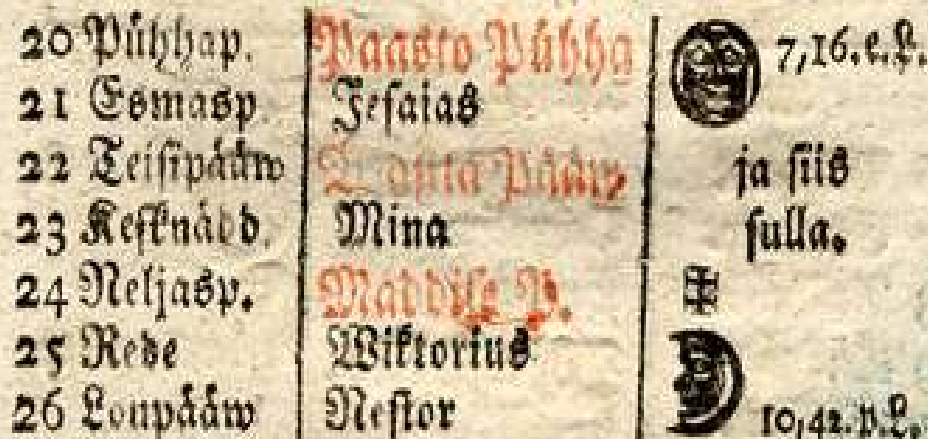 20 Pühhap. Paasto Pühha 7,16. e. L.
21 Esmasp. Jesaias
22 Teisipääw Pääw ja siis
23 Kesknädd. Mina sulla.
24 Neljasp. Maddise P.
25 Rede Wiktorius
26 Loupääw Nestor 10,42. p. L.